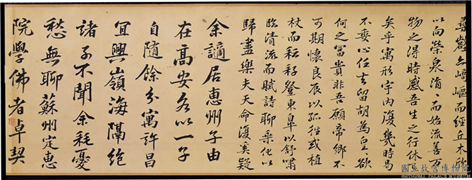 尋壑亦崎嶇而經丘木欣欣
以向榮泉涓涓而始流善萬
物之得時感吾生之行休已
矣乎寓形宇內復幾時曷
不委心任去留胡為皇皇欲
何之富貴非吾願帝鄉不
可期懷良辰以孤往或植
杖而耘耔登東皋以舒嘯
臨清流而賦詩聊乘化以
歸盡樂夫天命復奚疑
余謫居惠州子由
在高安各以一子
自隨餘分寓許昌
宜興嶺海隔絕
諸子不聞余耗憂
愁無聊蘇州定惠
院學佛者卓契
國立故宮博物院